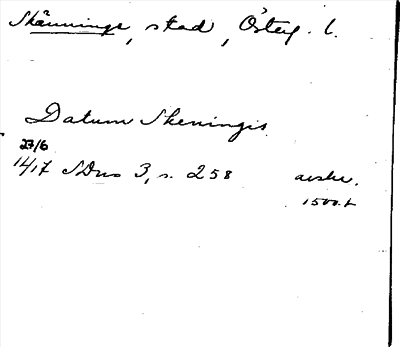 Skänninge, stad, Österg. l.
Datum Skeningis
27/6
1417 SDns 3, s. 258 avskr.
1500-t